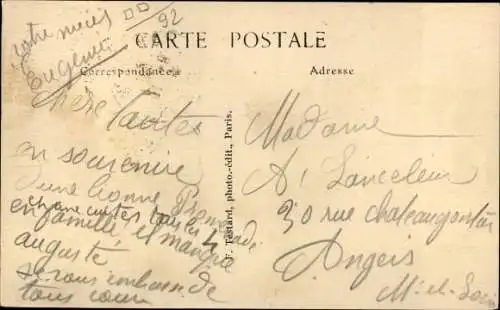 votre nièce
Eugénie
92
CARTE POSTALE
Correspondance
Adresse
Chère Tantes
en souvenire
d'une bonne Promenade
chancuites tous les 4
en famille, il manque
auguste
je vous embrasse de
tous cœur
F. Testard, photo-édit., Paris.
Madame
A. Lanceleur
30 rue chateaugontier
Angers
M. et Loire